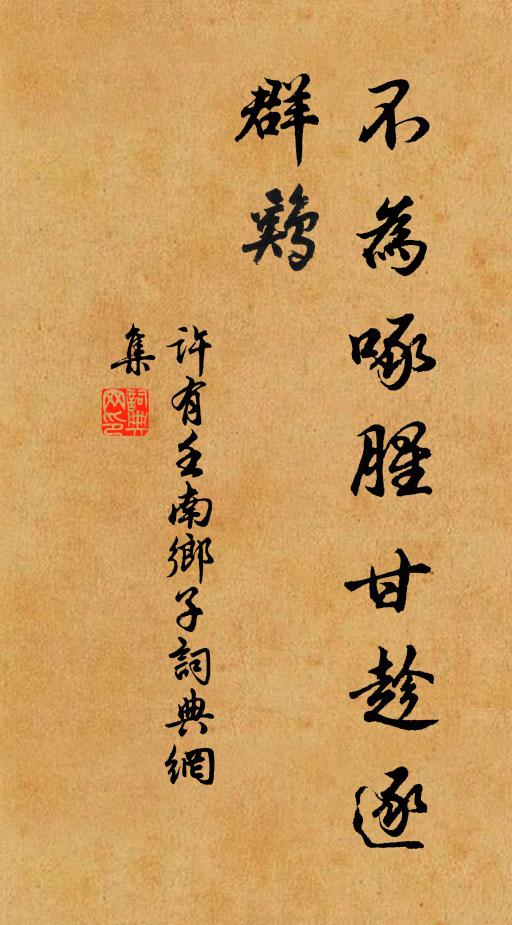 不為啄腥甘趁逐
群鶏
許有壬南鄉子詞典網
集
詞典
网印